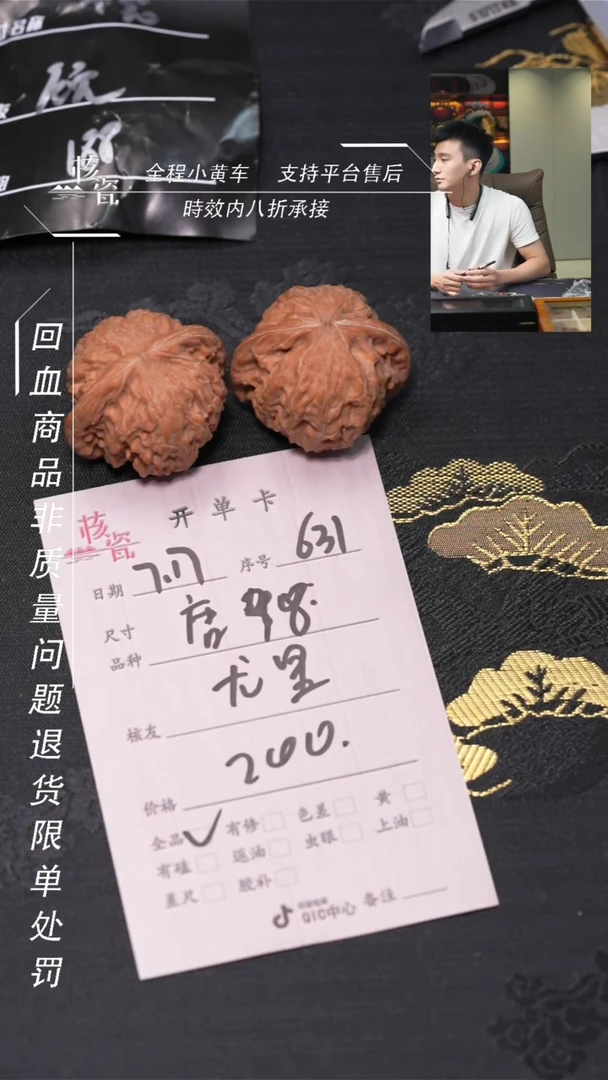 核瓷
全程小黄车 支持平台售后
時效内八折承接
回血商品非质量问题退货限单处罚
核瓷
开单卡
日期 7.17 序号 631
尺寸
品种
核友
200.
价格
全品 ✓ 有修 色差 黄
有磕 返油 虫眼 上油
差尺 胶补
QIC中心 备注